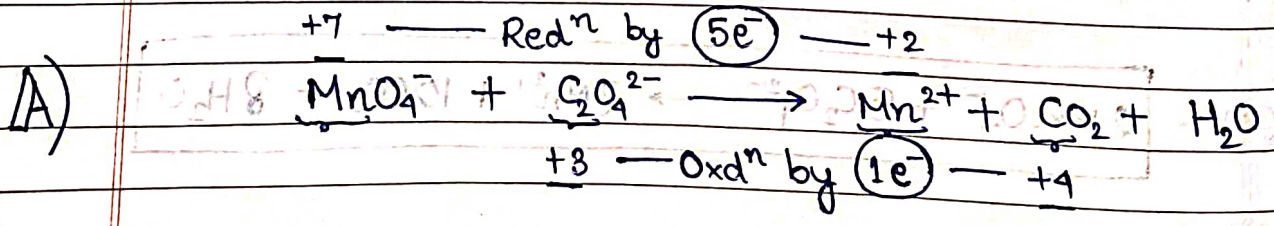 +7 —— Redⁿ by (5e⁻) —— +2
A) MnO₄⁻ + C₂O₄²⁻ ⟶ Mn²⁺ + CO₂ + H₂O
+3 — Oxdⁿ by (1e⁻) — +4